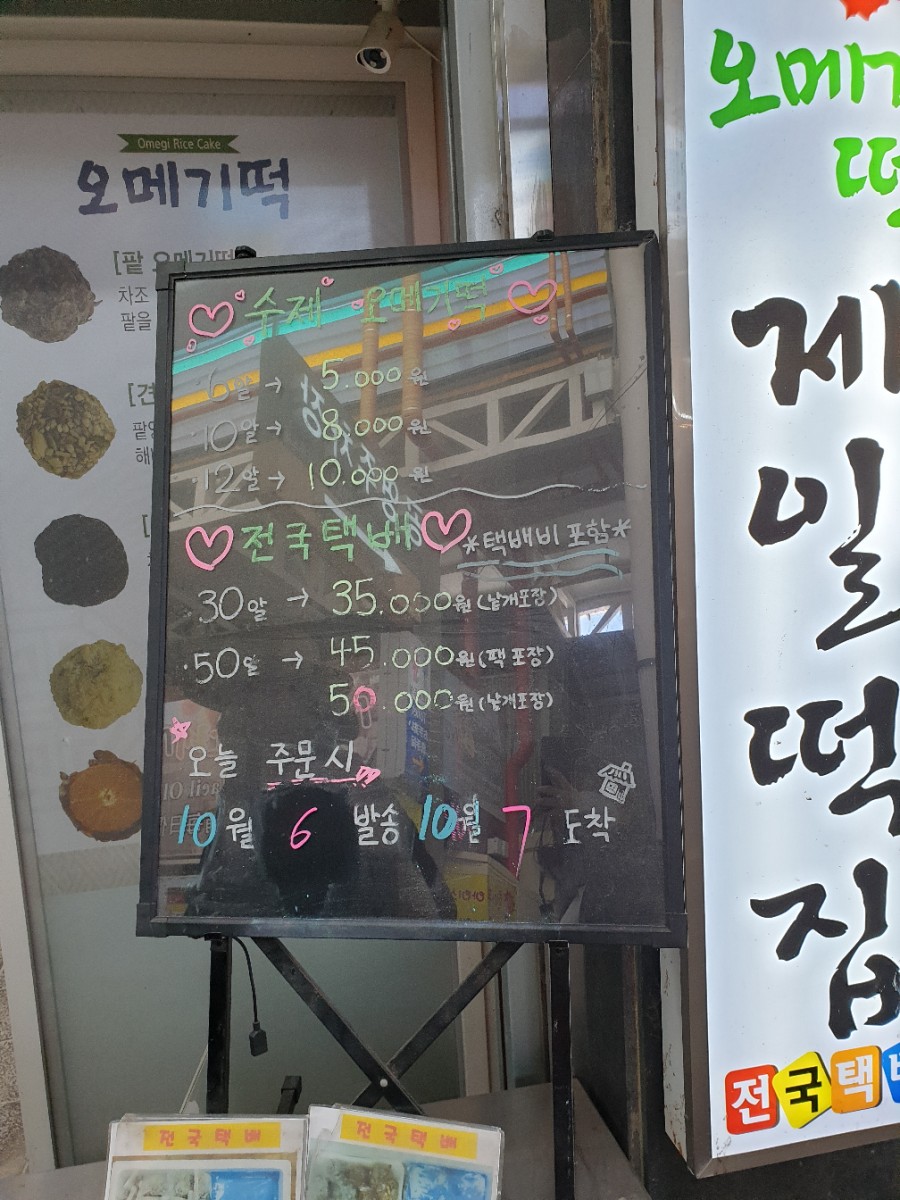 Omegi Rice Cake
오메기떡
[팥 오메기떡
차조
팥을
[견
수제 오메기떡
6알 → 5.000원
·10알 → 8.000원
·12알 → 10.000원
전국택배 *택배비 포함*
30알 → 35.000원(낱개포장)
·50알 → 45.000원(팩 포장)
50.000원(낱개포장)
오늘 주문 시
10월 6 발송 10월 7 도착
오메기
떡
제
일
떡
집
전국택배
전국택배
전국택배